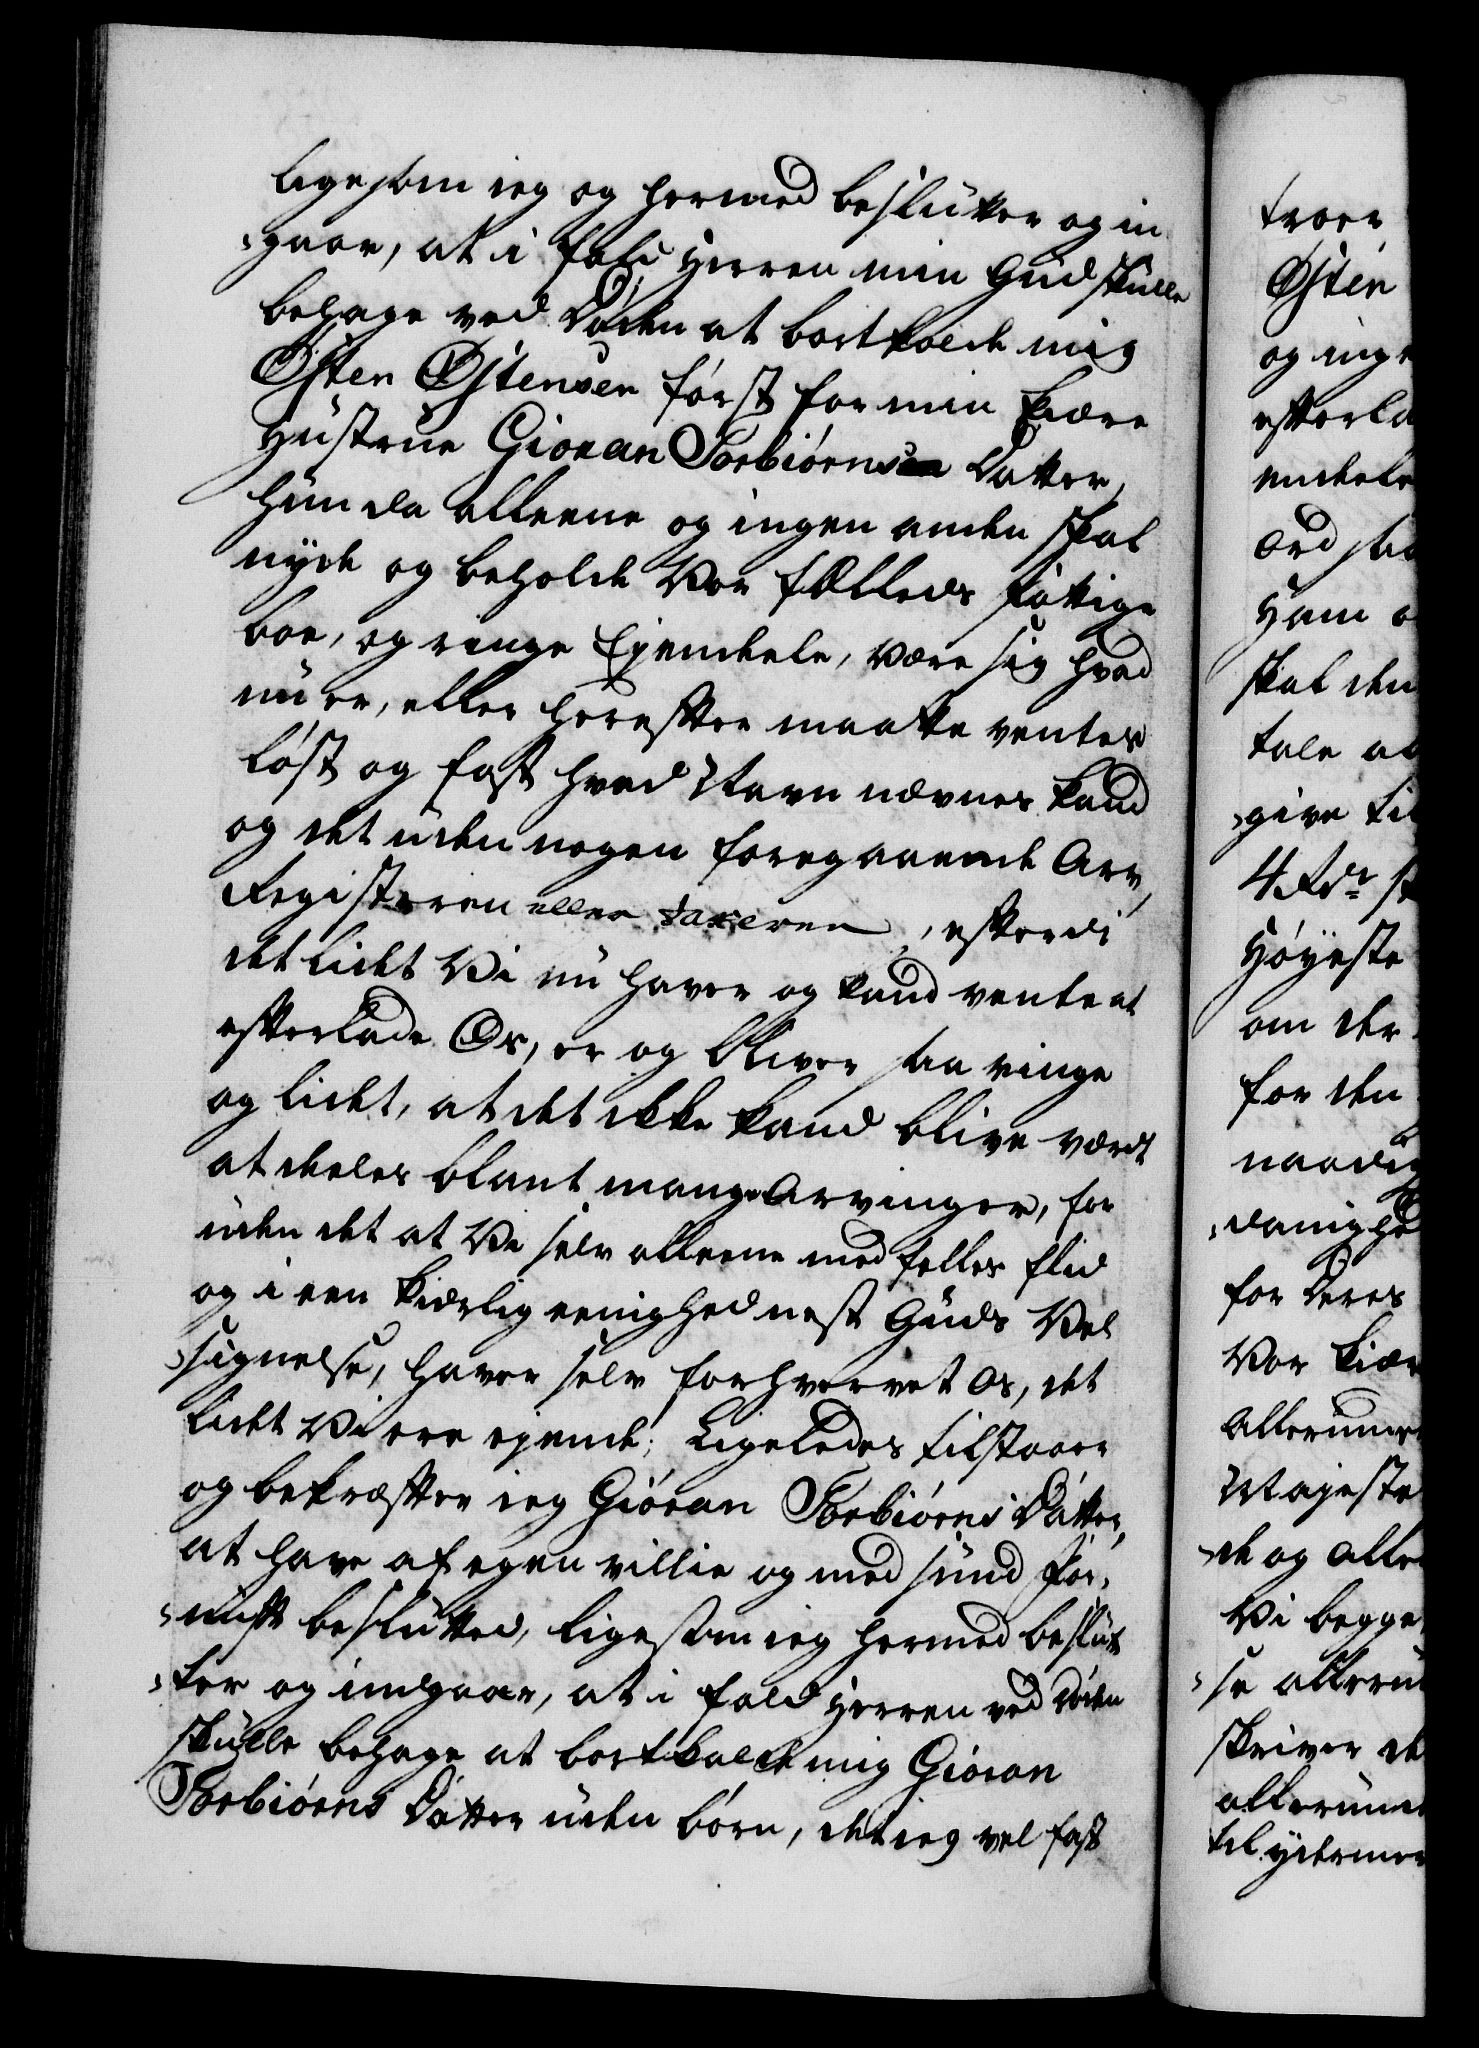 ligesom ieg og hermed beslutter og in
gaar, at i fald Herren min Gud skulle
behage ved Døden at bortkalde mig
Østen Østensen først for min kiære
Hustrue Gioran Torbiørns Datter,
hun da alleene og ingen anden skal
nyde og beholde Vor fælleds fattige
boe, og ringe Ejendele, være sig hvad
nu er, eller herefter maatte ventes
løst og fast hvad Navn nævnes kand
og det uden nogen foregaaende Arv,
Registeren eller Taxeren, efterdi
det lidet Vi nu haver og kand vente at
efterlade Os, er og bliver saa ringe
og lidet, at det ikke kand blive værdt
at deeles blant mange Arvinger, for
uden det at Vi selv alleene med felles flid
og i een kiærlig eenighed nest Guds Vel
signelse, haver selv forhvervet os, det
lidet Vi ere ejende; Ligeledes tilstaaer
og bekræfter ieg Gióran Torbiørns Datter,
at have af egen villie og med sund For,
nuft beslutted, ligesom ieg hermed beslut
ter og indgaar, at i fald Herren ved Døden
skulle behage at bortkalde mig Gióran
Torbiørns Datter uden børn, det ieg vel fast
troer
Østen
og ing
efterla
endeele
ord
Ham
skal den
tale
give til
4 Rdr
Høyeste
om der
for den
naadig
danighed
for Deres
Vor kiær
Allerunde
Majeste
de og Alle
Vi begge
se allerun
skriver de
allerund
til ydermer